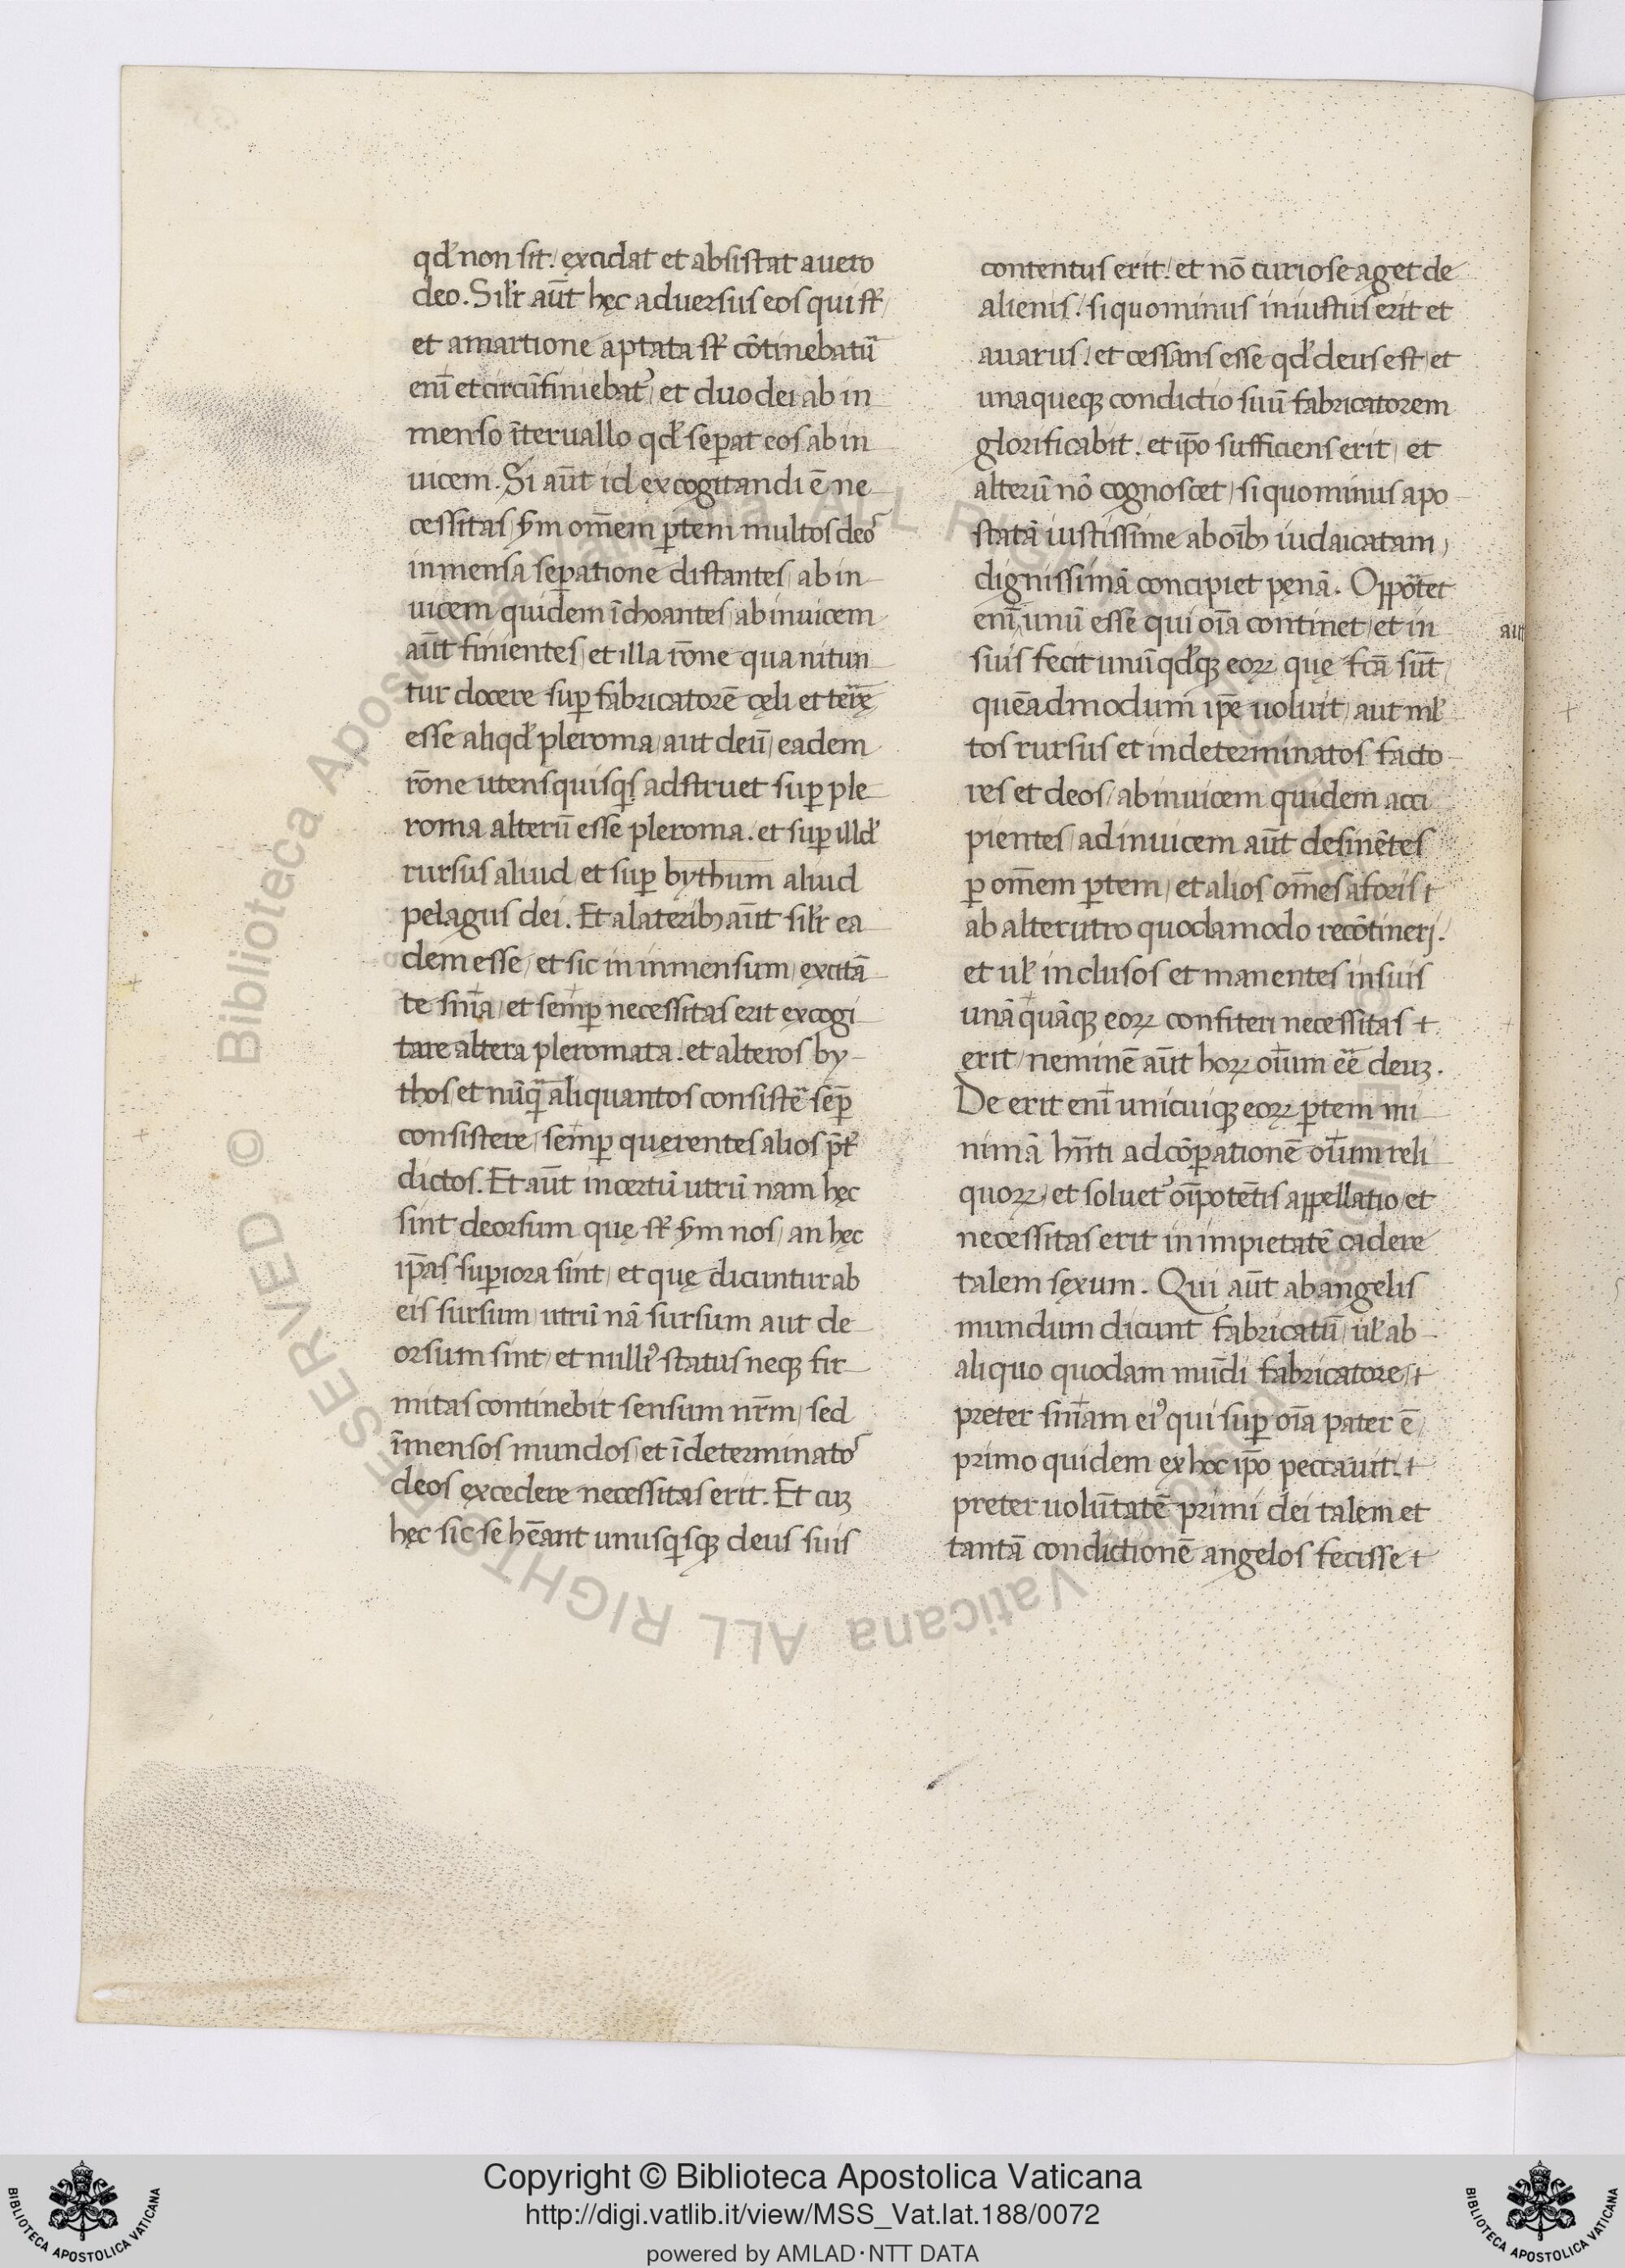 qd' non sit. excidat et absistat a uero
deo. Silr aūt hęc aduersus eos qui st'
et amartione aptata st' cōtinebatū
enī et circūfiniebat', et duo dei ab in
menso īteruallo qd' sepat eos ab in
uicem. Si aūt id excogitandi ē ne
cessitas, om̄em ptem multos deos
inmensa sepatione distantes, ab in
uicem quidem īchoantes, ab inuicem
aūt finientes, et illa rōne qua nitun
tur docere sup fabricatorē cęli et terrę
esse aliqd' pleroma, aut deū, eadem
rōne utens quisqs adstruet sup ple
roma alterū esse pleroma. et sup illd'
rursus aliud, et sup bythum aliud
pelagus dei. Et a laterib; aūt silr ea
dem esse, et sic in inmensum, excitā
te snīa, et semp necessitas erit excogi
tare altera pleromata. et alteros by
thos, et nūq̄ aliquantos consistē sēp
consistere, semp querentes alios pt'
dictos. Et aūt incertū utrū nam hęc
sint deorsum quę st' nos, an hęc
ip̄as supiora sint, et quę dicuntur ab
eis sursum, utrū nā sursum aut de
orsum sint, et nulli' status neq; fir
mitas continebit sensum nr̄m, sed
īmensos mundos, et īdeterminatos
deos excedere necessitas erit. Et cuȝ
hęc sic se hēant unusqsq; deus suis
contentus erit. et nō curiose aget de
alienis. si quominus iniustus erit et
auarus. et cessans esse qd' deus est, et
unaqueq; condictio suū fabricatorem
glorificabit. et ip̄o sufficiens erit, et
alterū nō cognoscet, si quominus apo
statā iustissime ab oīb; iudaicatam,
dignissimā concipiet pęnā. Oppōtet
enī unū esse qui oīa continet, et in
aut
suis fecit unūqd'q; eoꝝ quę fcā sūt,
quēadmodum ip̄e uoluit, aut ml'
tos rursus et indeterminatos facto
res et deos, ab inuicem quidem acci
pientes, ad inuicem aūt desinētes
p om̄em ptem, et alios om̄es a foris +
ab alterutro quodamodo recōtinerj.
et ul' inclusos et manentes in suis
unā quāq; eoꝝ confiteri necessitas +
erit, neminē aūt hoꝝ oīum ēe deuȝ.
De erit enī unicuiq; eoꝝ ptem mi
nimā hn̄ti ad cōpationē oīum reli
quoꝝ, et soluet' oīpotētis appellatio, et
necessitas erit in impietatē cadere
talem sęxum. Qui aūt ab angelis
mundum dicunt fabricatū, ul' ab
aliquo quodam mūdi fabricatore, +
preter snīam ei' qui sup oīa pater ē,
primo quidem ex hoc ip̄o peccauit. +
preter uolūtatē primi dei talem et
tantā condictionē angelos fecisse +
Copyright © Biblioteca Apostolica Vaticana
http://digi.vatlib.it/view/MSS_Vat.lat.188/0072
powered by AMLAD·NTT DATA